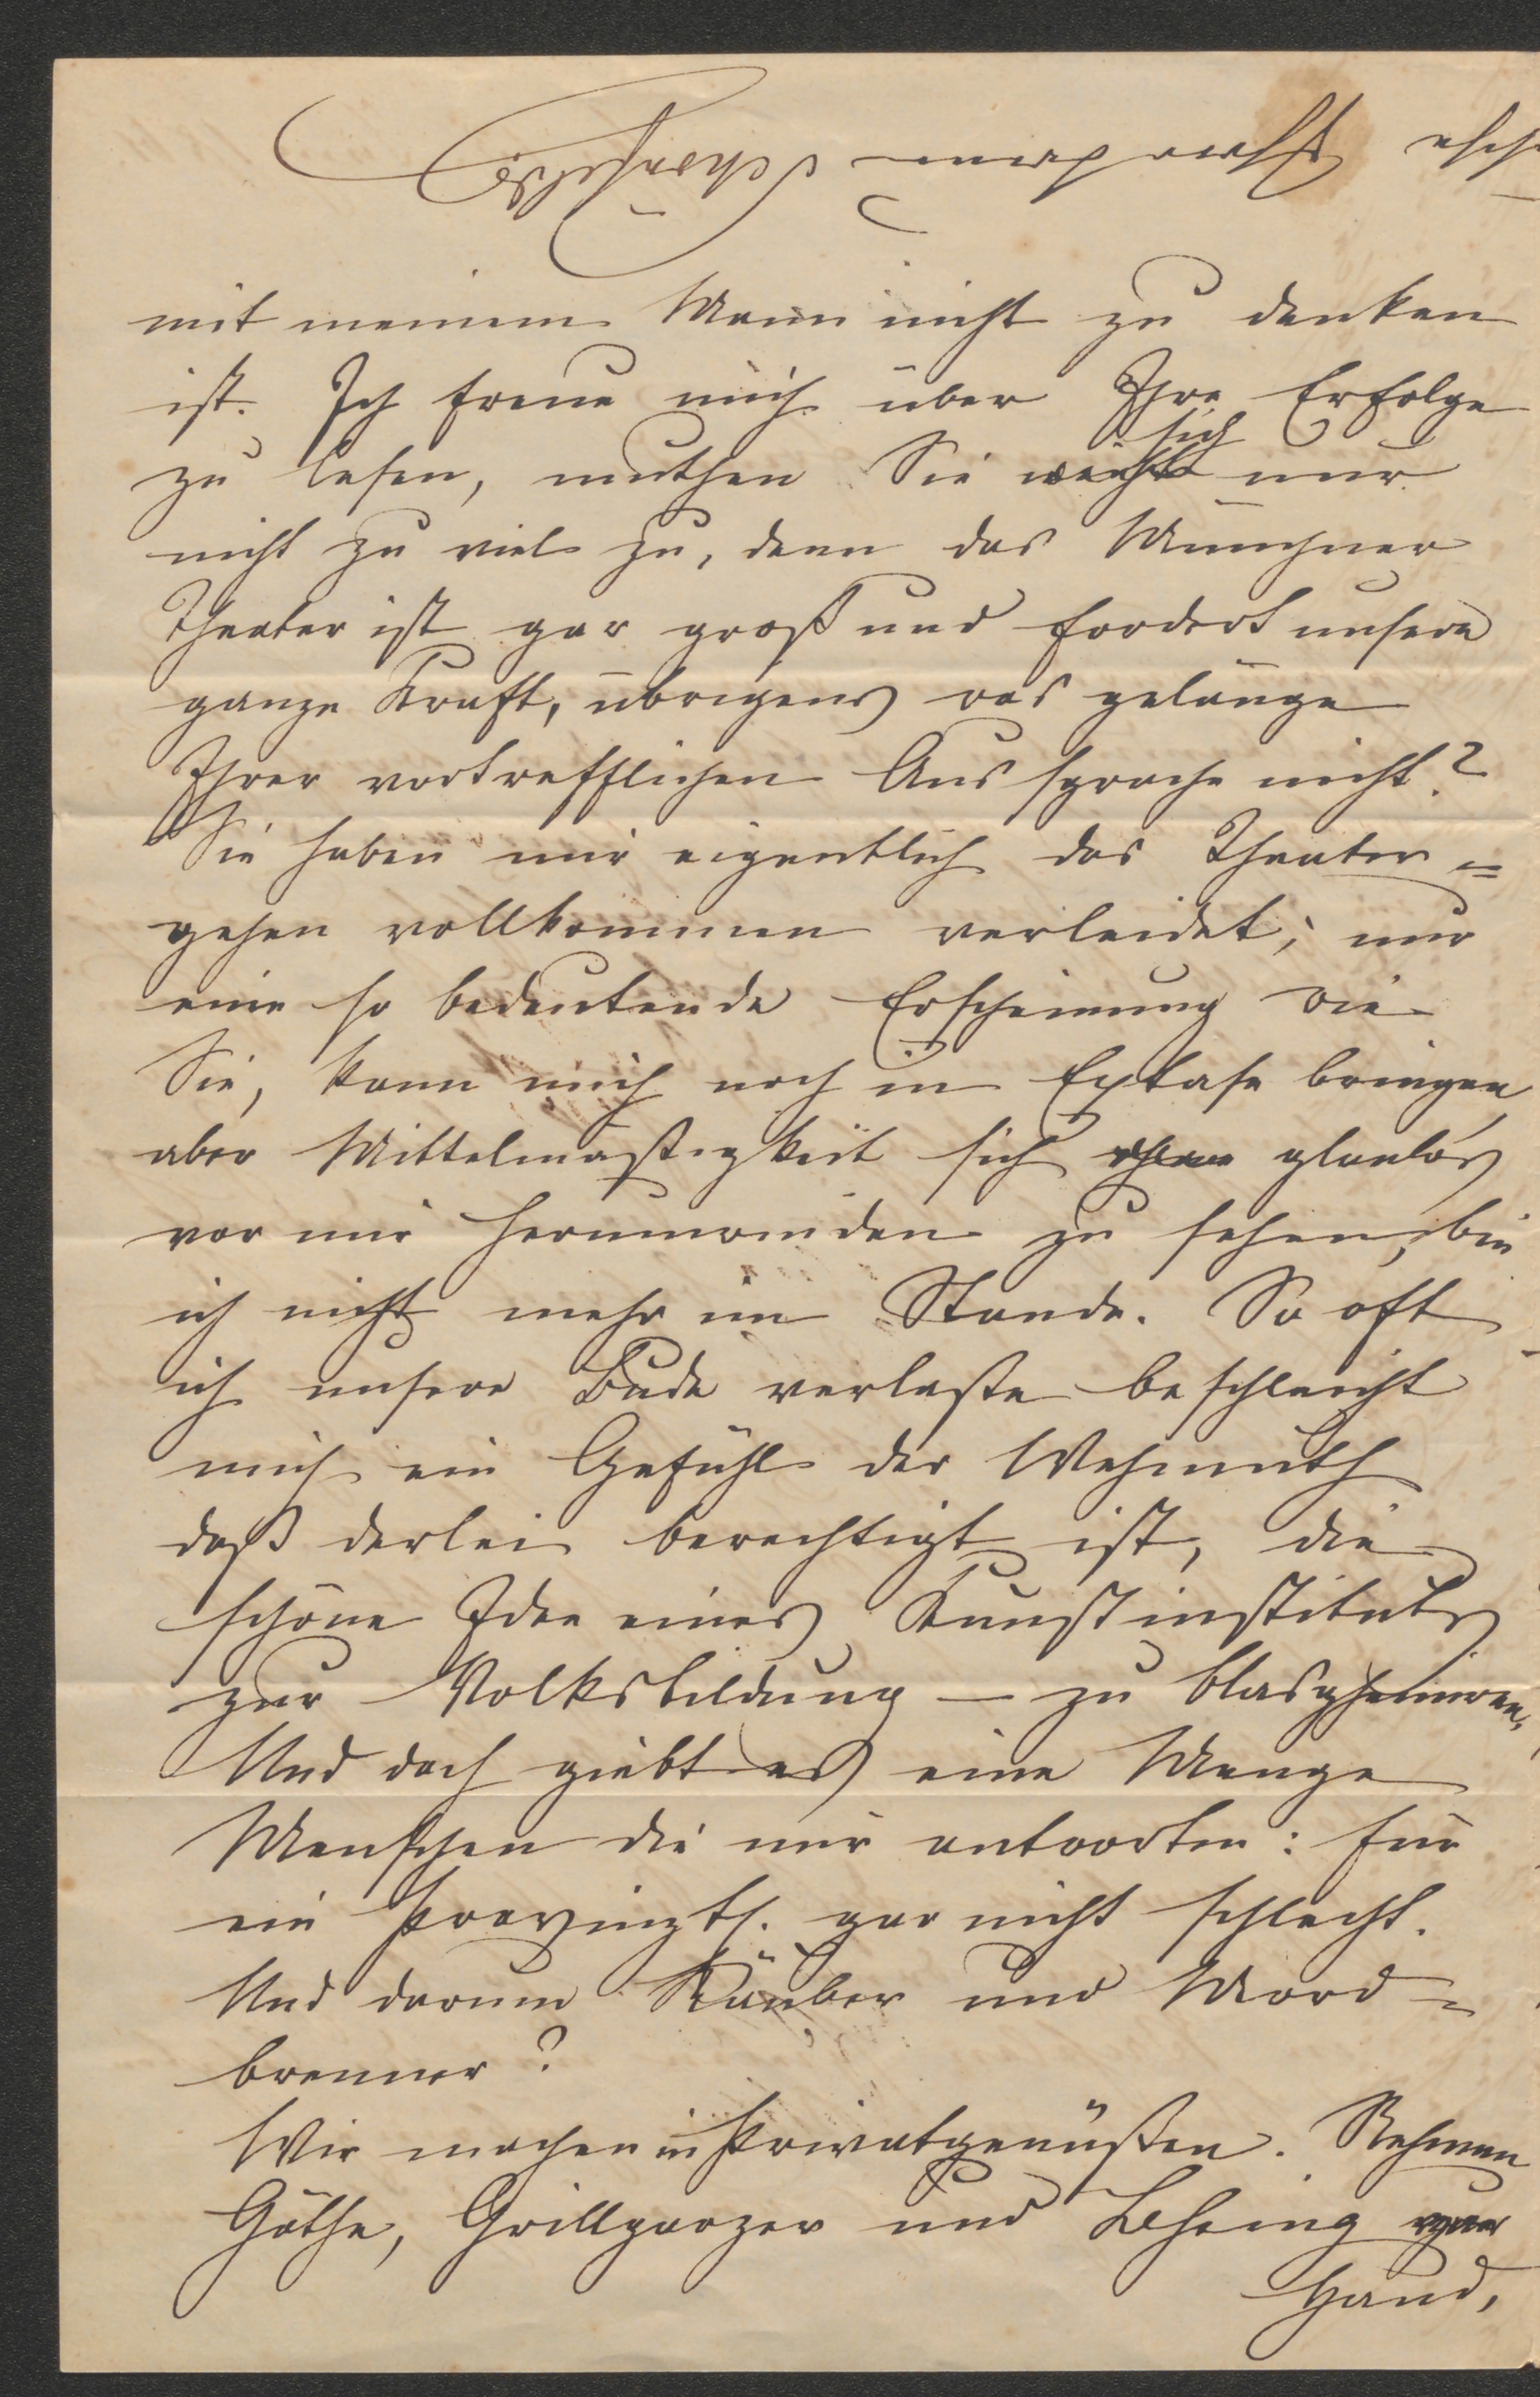 mit meinem Mann nicht zu denken
ist. Ich freue mich über Ihre Erfolge
sich
zu lesen, muthen Sie nur
nicht zu viel zu, denn das Münchner
Theater ist gar groß und fordert unsere
ganze Kraft, übrigens was gelänge
Ihrer vortrefflichen Aussprache nicht?
Sie haben mir eigentlich das Theater=
gehen vollkommen verleidet; nur
eine so bedeutende Erscheinung wie
Sie, kann mich noch in Extase bringen
aber Mittelmäßigkeit sich
vor mir herumwinden zu sehen, bin
ich nicht mehr im Stande. So oft
ich unsere Bude verlaße beschleicht
mich ein Gefühl der Wehmuth
daß derlei berechtigt ist, die
schöne Idee eines Kunstinstituts
zur Volksbildung — zu blasphemiren.
Und doch giebt es eine Menge
Menschen die mir antworten: für
ein Provinzth. gar nicht schlecht.
Und darum Räuber und Mord=
brenner?
Wir machen in Privatgenüßen. Nehmen
Göthe, Grillparzer und Leßing zur
Hand,